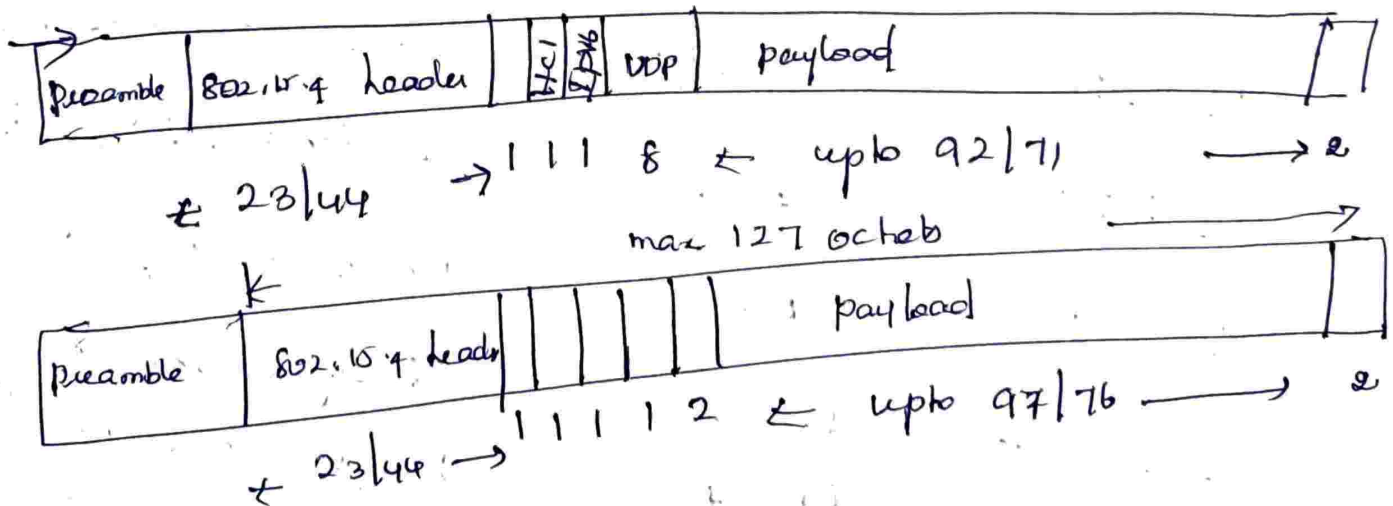 Preamble 802.15.4 header HC1 IPv6 UDP payload
23/44 → 1 1 1 8 ← upto 92/71 → 2
max 127 octets
Preamble 802.15.4 header payload
← 23/44 → 1 1 1 1 2 ← upto 97/76 → 2